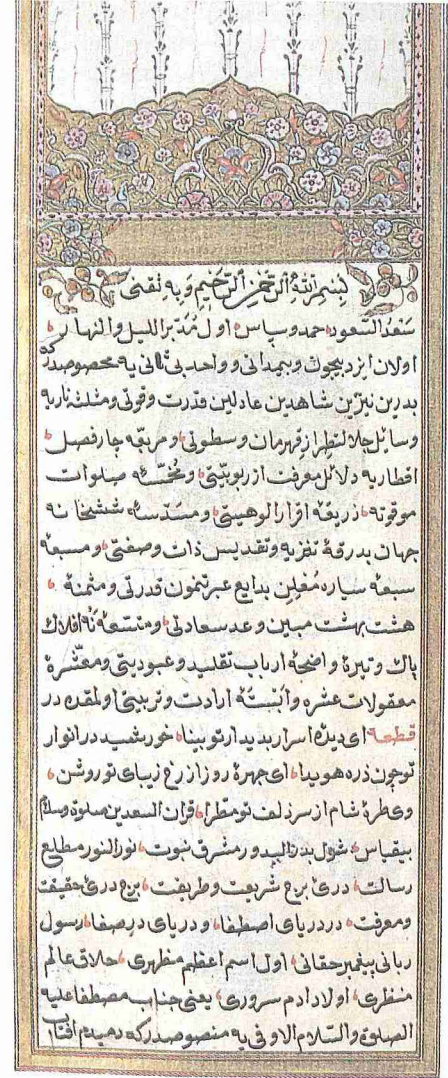 بسم الله الرحمن الرحيم وبه ثقتى
سعد السعود حمد وسپاس اول مدبر الليل والنهار
اولان ايزد بيچون وبيمدانى وواحد بى ثانى يه مخصوصدركه
بدرين نيرين شاهدين عادلين قدرت وقوتى ومثلثه ناريه
وسائل جلالتطراز قهرمان وسطوتى ومربعه چار فصل
اقطاريه دلائل معرفت از ربوبيتى ومخمسه صلوات
موقوته ذريعه اقرار الوهيتى ومسدسه ششخانه
جهان بدرقه تنزيه وتقديس ذات وصفتى ومسبعه
سبعه سياره معلن بدايع عبرتمون قدرتى ومثمنه
هشت بهشت مبين وعد سعادتى ومتسعه نه افلاك
پاك وتيره واضحه ارباب تقليد وعبوديتى ومعشره
معقولات عشره وابسته ارادت وتربيتى اولمقده در
قطعه اى ديده اسرار بديدار تو بينا خورشيد در انوار
تو چون ذره هويدا اى چهره روز از رخ زيباى تو روشن
وى طره شام از سر زلف تو مطرا قران السعدين صلوة وسلام
بيقياس شول بدر تاليد ور مشرق نبوت نور النور مطلع
رسالت درى برج شريعت وطريقت برج درى حقيقت
ومعرفت در درياى اصطفا ودرياى در صفا رسول
ربانى پيغمبر حقانى اول اسم اعظم مظهرى خلاق عالم
منظرى اولاد ادم سرورى يعنى جناب مصطفا عليه
الصلوة والسلام الاوفى يه منصوصدركه دميدم افتاب